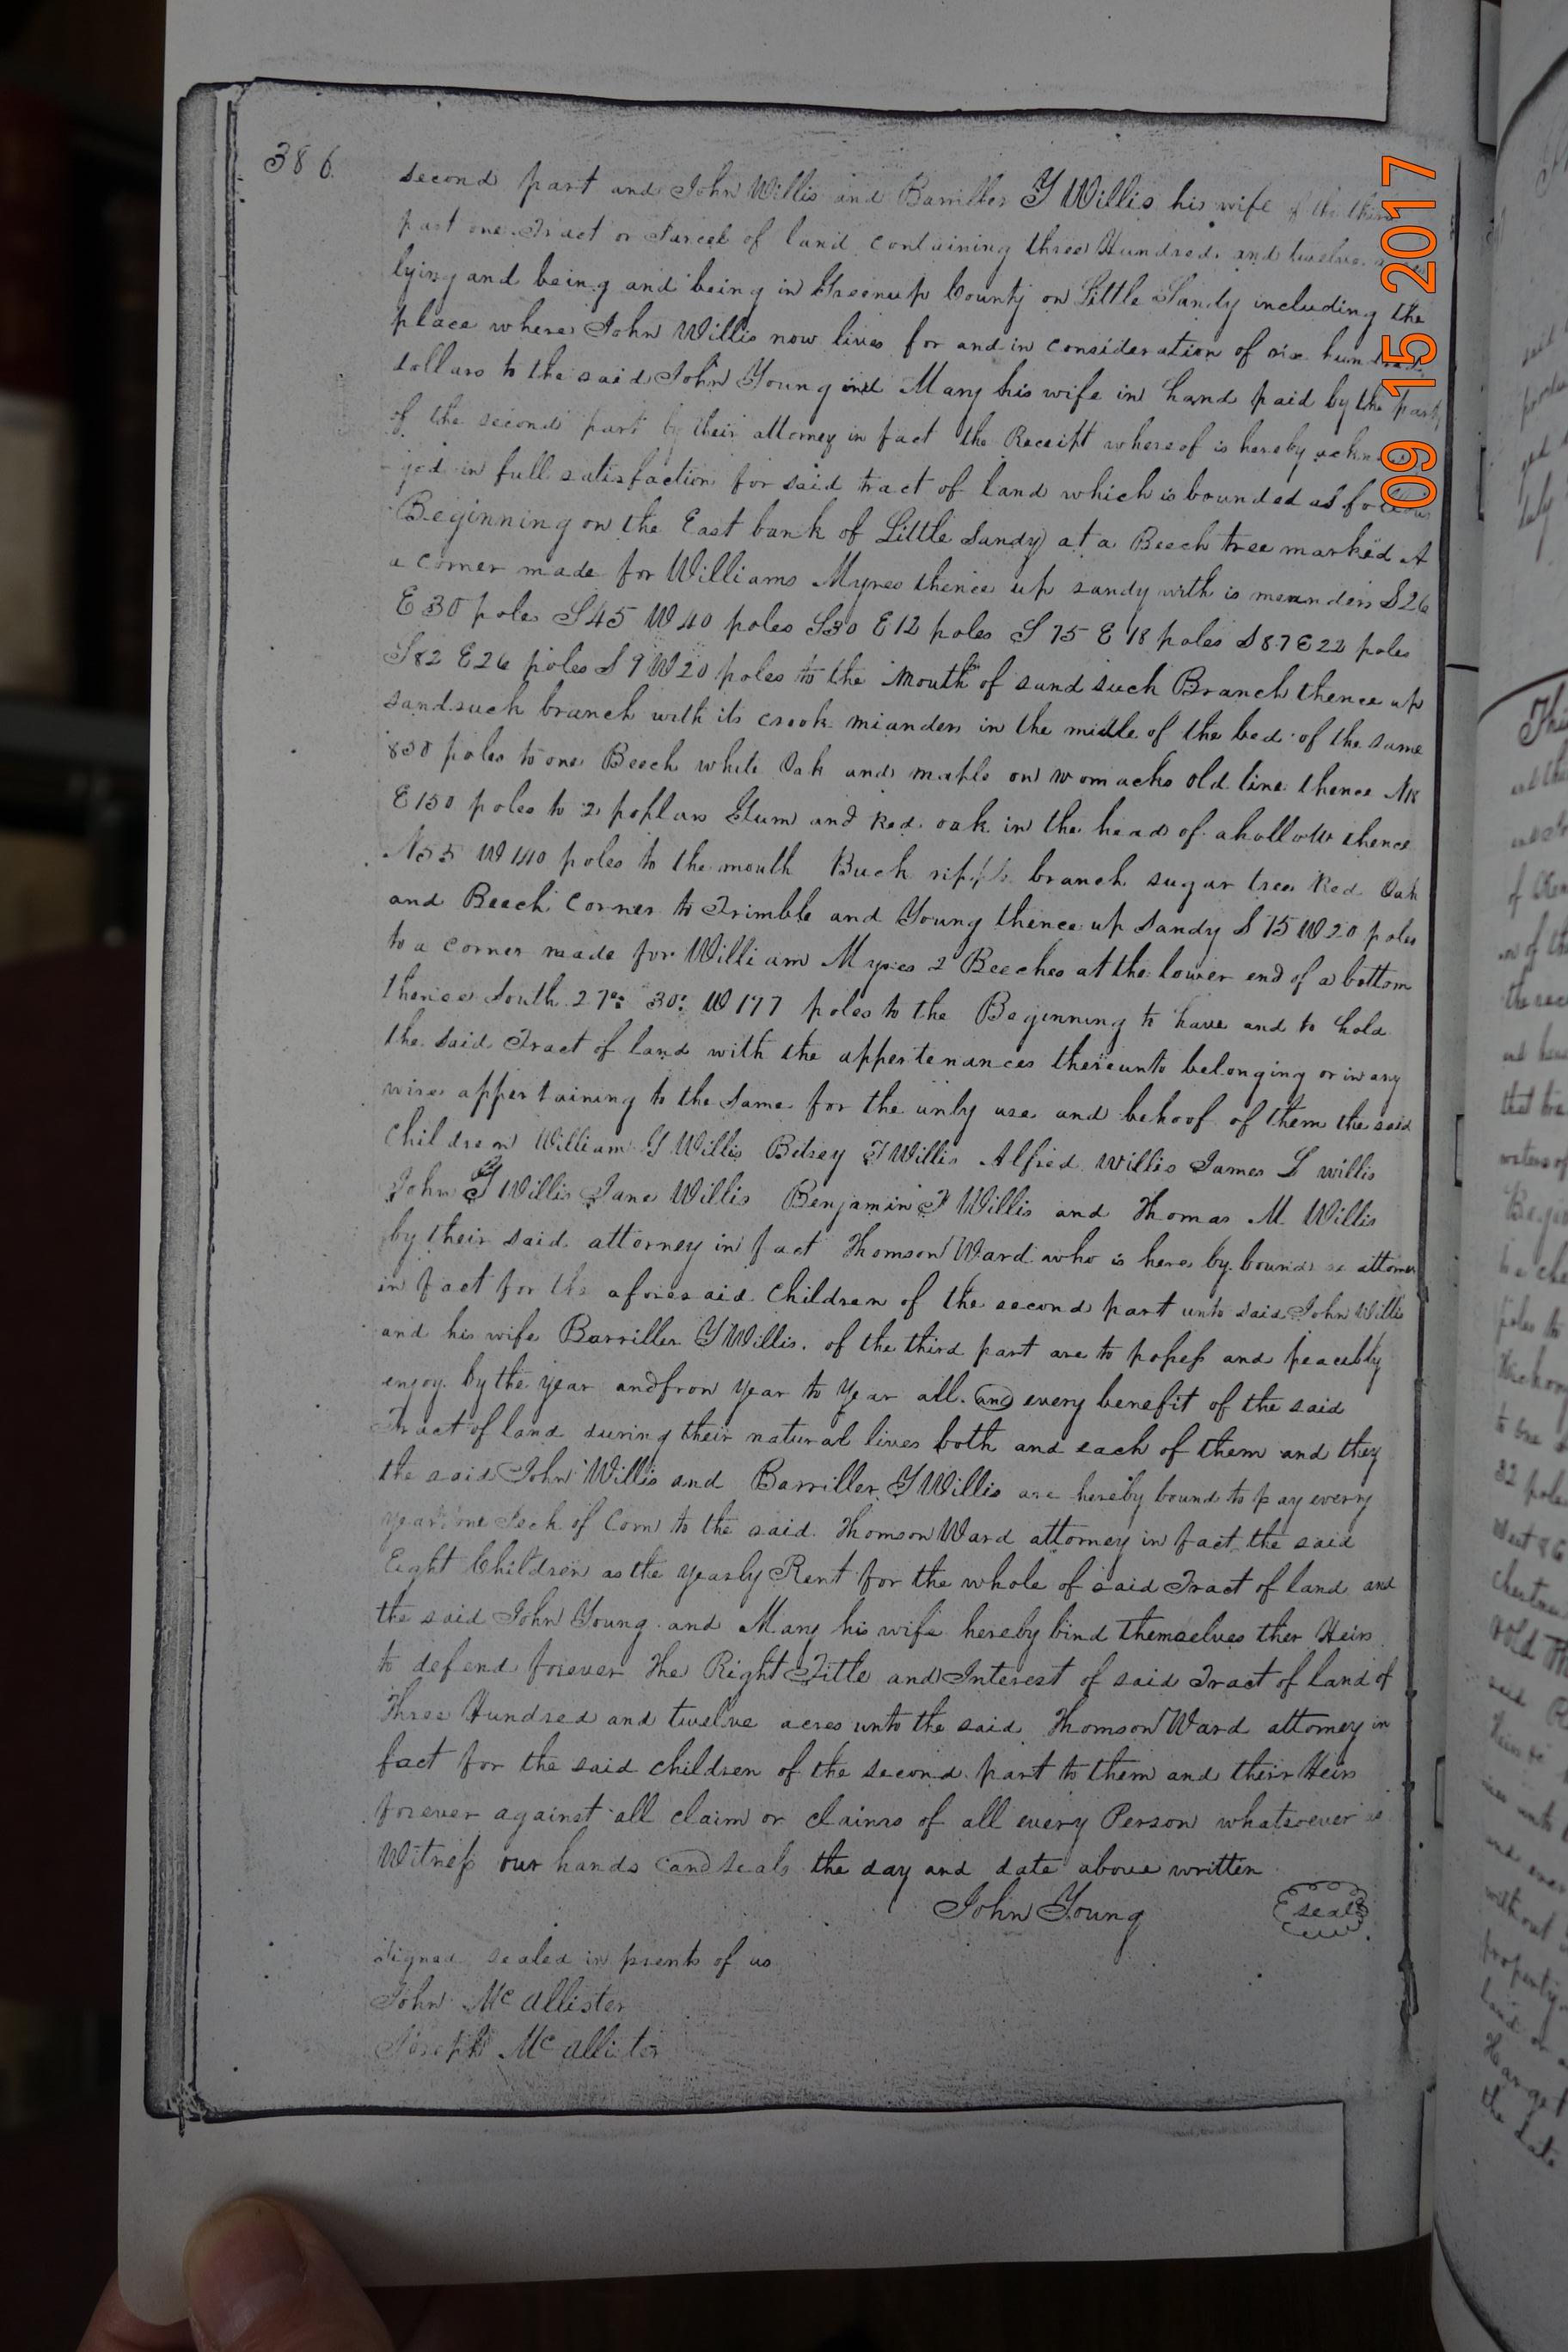 386.
second part and John Willis and Barriller Y Willis his wife of the third
part one Tract or Parcel of land containing three Hundred and twelve
lying and being and being in Greenup County on Little Sandy including the
place where John Willis now lives for and in consideration of six hundred
dollars to the said John Young and Mary his wife in hand paid by the party
of the second part by their attorney in fact the Receipt whereof is hereby
in full satisfaction for said tract of land which is bounded as follows
Beginning on the East bank of Little Sandy at a Beech tree marked A
a corner made for Williams Myres thence up sandy with is meanders S26
E 30 poles S45 W40 poles S30 E12 poles S 75 E 18 poles S87 E22 poles
S82 E26 poles S 9 W20 poles to the mouth of sand such Branch thence up
sandsuck branch with its crook mianders in the middle of the bed of the same
poles to one Beech white Oak and maple on womacks old line thence N18
E150 poles to 2 poplars Gum and Red oak in the head of a hollow thence
N55 W140 poles to the mouth Buck ripple branch sugar tree Red Oak
and Beech Corner to Trimble and Young thence up Sandy S 75 W20 poles
to a corner made for William Myres 2 Beeches at the lower end of a bottom
thence South 27° 30' W 177 poles to the Beginning to have and to hold
the said Tract of land with the appertenances thereunto belonging or in any
wise appertaining to the same for the only use and behoof of them the said
children William Y Willis Betsey T Willis Alfred Willis James L willis
John Y Willis Jane Willis Benjamin F Willis and Thomas M Willis
by their said attorney in fact Thomson Ward who is here by bound as attorney
in fact for the aforesaid children of the second part unto said John Willis
and his wife Barriller Y Willis. of the third part are to possess and peacebly
enjoy by the year and from year to year all and every benefit of the said
Tract of land during their natural lives both and each of them and they
the said John Willis and Barriller Y Willis are hereby bound to pay every
year one Peck of Corn to the said Thomson Ward attorney in fact the said
Eight Children as the yearly Rent for the whole of said Tract of land and
the said John Young and Mary his wife hereby bind themselves ther Heirs
to defend forever the Right Title and Interest of said Tract of land of
Three Hundred and twelve acres unto the said Thomson Ward attorney in
fact for the said children of the second part to them and their Heirs
forever against all claim or claims of all every Person whatsoever
Witness our hands and seals the day and date above written
John Young seal
Signed sealed in prsents of us
John McAllister
Joseph McAllister
09 15 2017